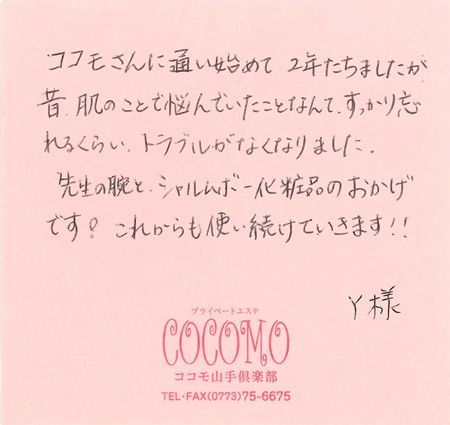 ココモさんに通い始めて 2年たちましたが
昔、肌のことで悩んでいたことなんて、すっかり忘
れるくらい、トラブルがなくなりました。
先生の腕と、シャルムボー化粧品のおかげ
です! これからも使い続けていきます!!
Y様
プライベートエステ
COCOMO
ココモ山手倶楽部
TEL・FAX(0773)75-6675